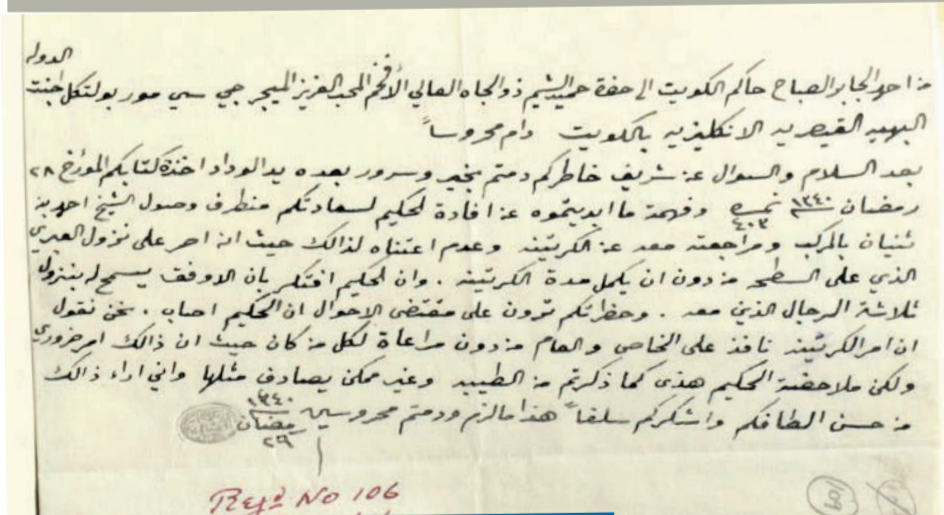 الدوله
من احمد الجابر الصباح حاكم الكويت الى حضرة حميد الشيم ذو الجاه العالي الأفخم المحب العزيز الميجر جي سي مور بولتكل اجنت
البهيه القيصريه الانكليزيه بالكويت دام محروساً
بعد السلام والسوال عن شريف خاطركم دمتم بخير وسرور بعده بيد الوداد اخذة كتابكم المورخ ٢٨
رمضان ١٣٤٠ نمرة ٤٠٣ وفهمة ما ابديتموه عن افادة الحكيم لسعادتكم منطرف وصول الشيخ احمد بن
ثنيان بالمركب ومراجعته معه عن الكرنتينه وعدم اعتناه لذالك حيث انه احر على نزول العبري
الذي على السطحه من دون ان يكمل مدة الكرنتينه . وان الحكيم افتكر بان الاوفق يسمح له بنزول
ثلاثة الرجال الذين معه . وحظرتكم ترون على مقتضى الاحوال ان الحكيم اصاب . نحن نقول
ان امر الكرنتينه نافذ على الخاص والعام من دون مراعاة لكل من كان حيث ان ذالك امر ضروري
ولكن ملاحظة الحكيم هذى كما ذكرتم من الطيبه وغير ممكن يصادف مثلها واني اراء ذالك
من حسن الطافكم واشكركم سلفاً هذا مالزم ودمتم محروسين
٢٩ رمضان ١٣٤٠
Regd No 106
109